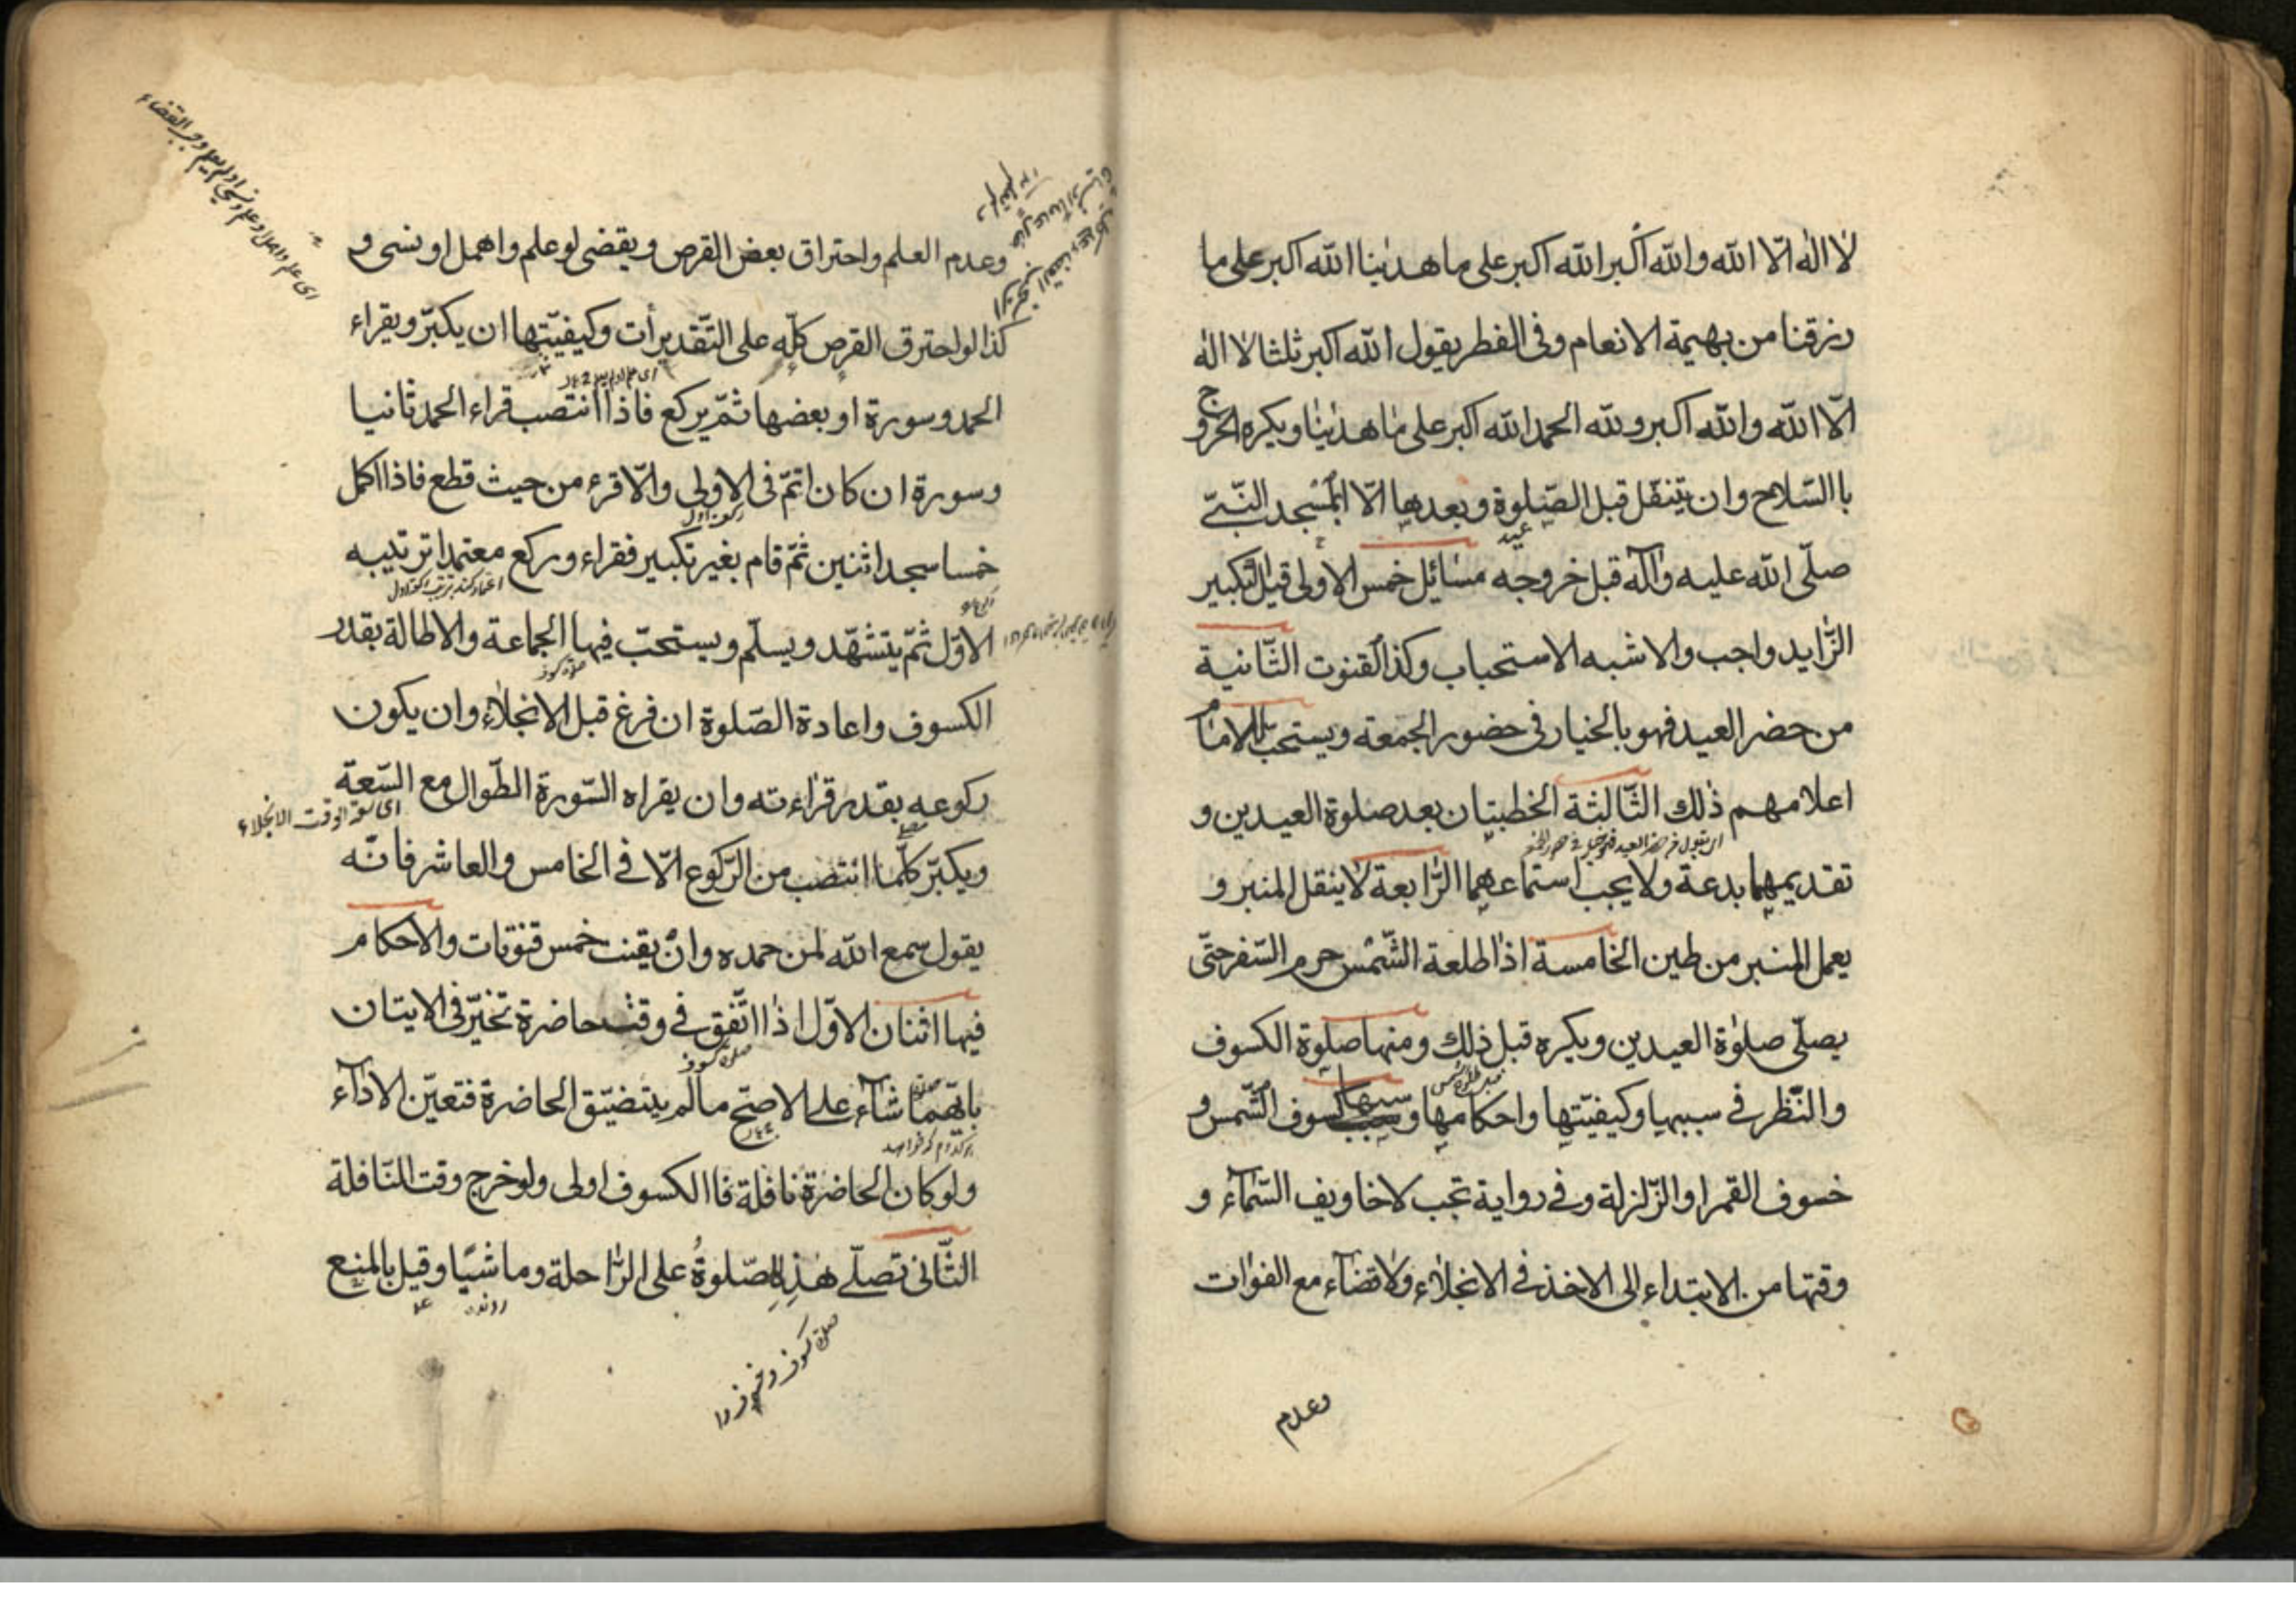 لا اله الّا الله والله اكبر الله اكبر على ما هدينا الله اكبر على ما
رزقنا من بهيمة الانعام وفى الفطر يقول الله اكبر ثلثا لا اله
الّا الله والله اكبر ولله الحمد الله اكبر على ما هدينا ويكره الخروج
باالسّلاح وان يتنفّل قبل الصّلوة وبعدها الّا بمسجد النّبىّ
عيد
صلّى الله عليه وآله قبل خروجه مسائل خمس الاولى قيل التكبير
الزّايد واجب والاشبه الاستحباب وكذا القنوت الثّانية
من حضر العيد فهو بالخيار فى حضور الجمعة ويستحبّ للامام
اعلامهم ذلك الثّالثة الخطبتان بعد صلوة العيدين و
تقديمهما بدعة ولا يجب استماعهما الرّابعة لا ينقل المنبر و
يعمل المنبر من طين الخامسة اذا طلعة الشّمس حرم السّفر حتّى
يصلّى صلوة العيدين ويكره قبل ذلك ومنها صلوة الكسوف
والنّظر فى سببها وكيفيّتها واحكامها و سببها كسوف الشّمس و
خسوف القمر او الزّلزلة وفى رواية تجب لاخاويف السّماء و
وقتها من الابتداء الى الاخذ فى الانجلاء ولا قضاء مع الفوات
وعدم
وعدم العلم واحتراق بعض القرص ويقضى لو علم واهمل او نسى و
كذا لو احترق القرص كلّه على التّقديرات وكيفيّتها ان يكبّر ويقراء
الحمد وسورة او بعضها ثمّ يركع فاذا انتصب قراء الحمد ثانيا
وسورة ان كان اتمّ فى الاولى والّا قرء من حيث قطع فاذا اكمل
ركعت اول
خمسا سجد اثنين ثمّ قام بغير تكبير فقراء وركع معتمدا ترتيبه
الاوّل ثمّ يتشهّد ويسلّم ويستحبّ فيها الجماعة والاطالة بقدر
صلوة كسوف
الكسوف واعادة الصّلوة ان فرغ قبل الانجلاء وان يكون
ركوعه بقدر قراءته وان يقراه السّورة الطّوال مع السّعة
اى سعة الوقت الانجلاء
ويكبّر كلّما انتصب من الرّكوع الّا فى الخامس والعاشر فانّه
يقول سمع الله لمن حمده وان يقنت خمس قنوتات والاحكام
فيها اثنان الاوّل اذا اتّفق فى وقت حاضرة تخيّر فى الايتان
صلوة كسوف
بايّهما شآء على الاصحّ مالم يتضيّق الحاضرة فتعيّن الادآء
هر كدام كه خواهد
ولو كان الحاضرة نافلة فاالكسوف اولى ولو خرج وقت النّافلة
الثّانى تصلّى هذه الصّلوةُ على الرّاحلة وماشيًا وقيل بالمنع
روندہ
صلوة كسوف وخسوف را